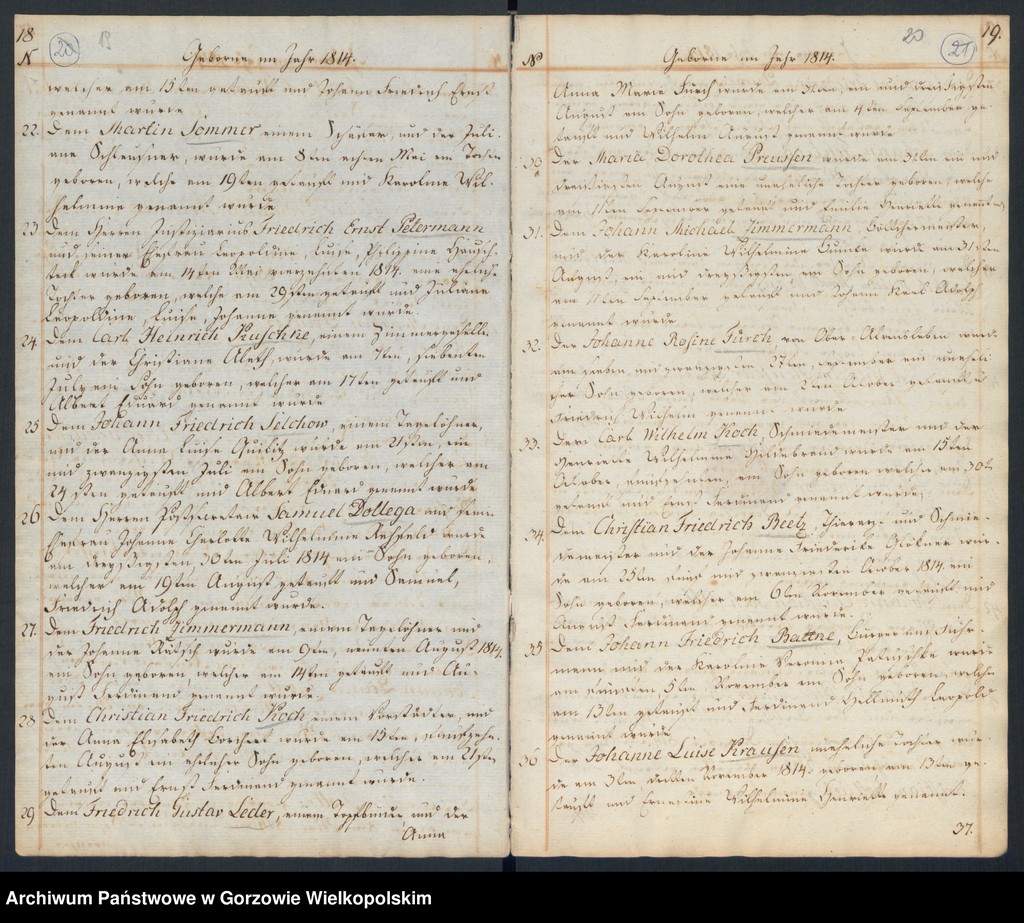 18
20
13
N
Geborne im Jahr 1814.
welcher am 15ten getauft und Johann Friedrich Ernst
genannt wurde
22. Dem Martin Sommer einem Schäfer, und der Juli-
ane Schleusner, wurde am 8ten achten Mai ein Tochter
geboren, welche am 19ten getauft und Karoline Wil-
helmine genannt wurde
23 Dem Herren Justiziarius Friedrich Ernst Petermann
und seiner Ehefrau Leopoldine, Luise, Philippine
wurde am 14ten Mai vierzehnten 1814. eine eheliche
Tochter geboren, welche am 29sten getauft und Juliane
Leopoldine, Luise, Johanne genannt wurde.
24. Dem Carl Heinrich Kuschke, einem Zimmergeselle
und der Christiane Aleth, wurde am 7ten, siebenten
July ein Sohn geboren, welcher am 17ten getauft und
Albert Eduard genannt wurde
25 Dem Johann Friedrich Selchow, einem Tagelöhner,
und der Anna Luise Quilitz wurde am 21sten, ein
und zwanzigsten Juli ein Sohn geboren, welcher am
24sten getauft und Albert Eduard genannt wurde
26 Dem Herren Postsecretair Samuel Dollega und
Ehefrau Johanne Charlotte Wilhelmine Rehfeld wurde
am dreyßigsten, 30ten Juli 1814 ein Sohn geboren,
welcher am 19ten August getauft und Samuel,
Friedrich Adolph genannt wurde.
27. Dem Friedrich Zimmermann, einem Tagelöhner und
der Johanne wurde am 9ten, neunten August 1814.
ein Sohn geboren, welcher am 14ten getauft und Au-
gust Ferdinand genannt wurde.
28 Dem Christian Friedrich Koch einem Vorstädter, und
der Anna Elisabeth Borchert wurde am 15ten, funfzehn-
ten August ein ehelicher Sohn geboren, welcher am 21sten
getauft und Ernst Ferdinand genannt wurde.
29 Dem Friedrich Gustav Leder, einem und der
Anna
19.
20
21
No
Geborne im Jahr 1814.
Anna Marie Fürch wurde am 31ten, ein und dreißigsten
August ein Sohn geboren, welcher am 4ten September ge-
tauft und Wilhelm August genannt wurde
30 Der Maria Dorothea Preussen wurde am 31ten ein und
dreißigsten August eine uneheliche Tochter geboren, welche
am 11ten September getauft und Emilie Henriette genannt
31. Dem Johann Michael Zimmermann Böttchermeister,
und der Karoline Wilhelmine wurde am 31sten
August, ein und dreyßigsten ein Sohn geboren, welcher
am 11ten September getauft und Johann Karl Adolph
genannt wurde
32. Der Johanne Rosine Fürch, von Ober-Alvensleben wurde
am sieben und zwanzigsten 27ten September ein uneheli-
cher Sohn geboren, welcher am 2ten October getauft u
Friedrich Wilhelm genannt wurde
33. Dem Carl Wilhelm Koch, Schmiedemeister und der
Henriette Wilhelmine Hildebrand wurde am 15ten
October, ein Sohn geboren welcher am 30ten
getauft und Ernst Ferdinand genannt wurde;
34. Dem Christian Friedrich Beetz, Thierarzt und Schmie-
demeister und der Johanne Friederike Glöckner wur-
de am 25ten fünf und zwanzigsten October 1814. ein
Sohn geboren, welcher am 6ten November getauft und
August Ferdinand genannt wurde.
35 Dem Johann Friedrich Battne, Bürger und Fuhr-
mann und der Karoline Veronna Petuschke wurde
am fünften 5ten November ein Sohn geboren, welcher
am 13ten getauft und Ferdinand Hellmuth Leopold
genannt wurde
36 Der Johanne Luise Krausen uneheliche Tochter wur-
de am 3ten, dritten November 1814. geboren, am 13ten ge-
tauft und Ernestine Wilhelmine Henriette genannt.
37.
Archiwum Państwowe w Gorzowie Wielkopolskim